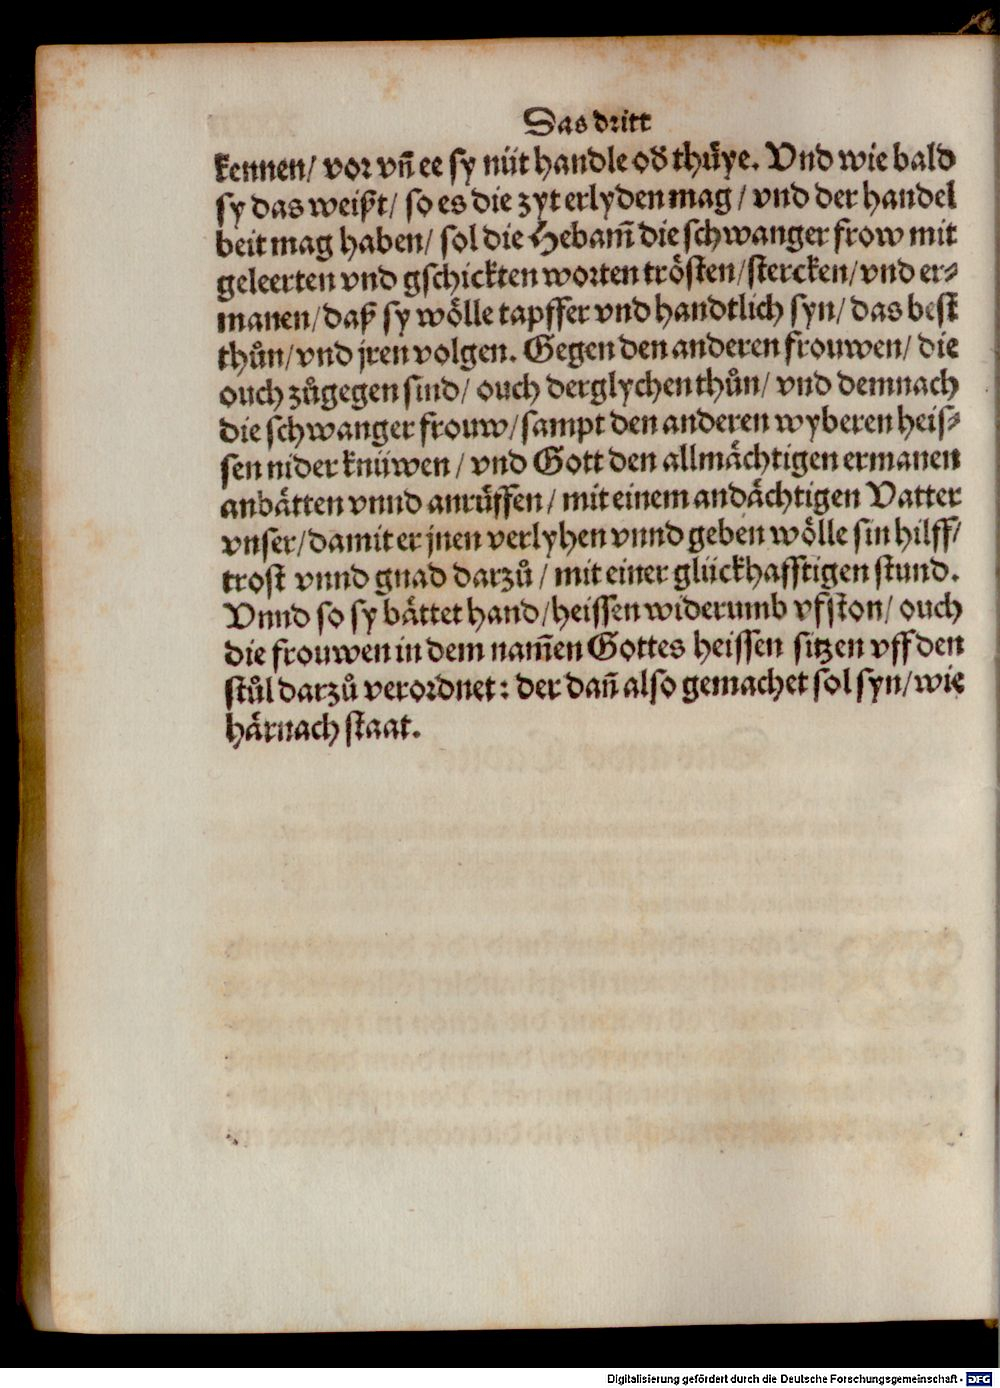 Das dritt
kennen/ vor vn̄ ee sy nüt handle od̕ thüye. Vnd wie bald
sy das weißt/ so es die zyt erlyden mag / vnd der handel
beit mag haben/ sol die Hebam̄ die schwanger frow mit
geleerten vnd gschickten worten trösten/ stercken/ vnd er⸗
manen/ daß sy wölle tapffer vnd handtlich syn/ das best
thůn/ vnd jren volgen. Gegen den anderen frouwen/ die
ouch zůgegen sind/ ouch derglychen thůn/ vnd demnach
die schwanger frouw/ sampt den anderen wyberen heis⸗
sen nider knüwen / vnd Gott den allmächtigen ermanen
anbätten vnnd anrüffen / mit einem andächtigen Vatter
vnser/ damit er jnen verlyhen vnnd geben wölle sin hilff/
trost vnnd gnad darzů / mit einer glückhafftigen stund.
Vnnd so sy bättet hand/ heissen widerumb vfston/ ouch
die frouwen in dem nam̄en Gottes heissen sitzen vff den
stůl darzů verordnet: der dan̄ also gemachet sol syn/ wie
härnach staat.
Digitalisierung gefördert durch die Deutsche Forschungsgemeinschaft - DFG